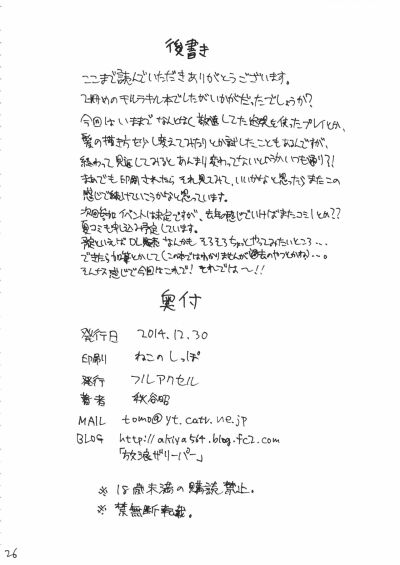 後書き
ここまで読んでいただきありがとうございます。
2冊めのキルラキル本でしたがいかがだったでしょうか?
今回はいままでなんとなく敬遠してた を使ったプレイとか、
髪の描き方を少し変えてみたりとか試したこともあるんですが、
終わって見返してみるとあんまり変わってないというかいつも通り?!
まぁでも印刷されたら それ見てみて、いいかなと思ったらまたこの
感じで続けていこうかなと思っています。
次回参加イベントは未定ですが、去年の感じでいけばまたコミ1とか??
夏コミも申し込み予定しています。
予定といえばDL販売なんかも そろそろちょっとやってみたいところ・・・
できたら加筆とかして(この本ではわかりませんが過去のやつとかね)・・・。
そんなな感じで今回はこれで! それでは〜!!
奥付
発行日 2014.12.30
印刷 ねこのしっぽ
発行 フルアクセル
著者 秋谷昭
MAIL tomo@yt.catv.ne.jp
BLOG http://akiya564.blog.fc2.com
「放浪ザリーパー」
※ 18歳未満の購読禁止。
※ 禁無断転載。
26